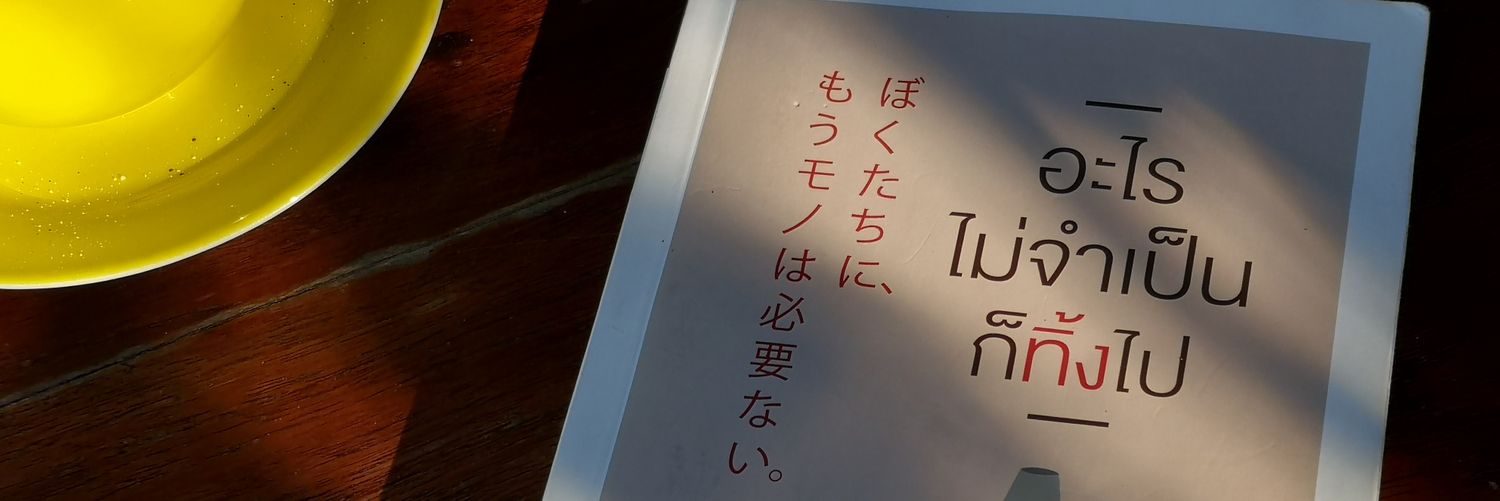 ぼくたちに、
もうモノは必要ない。
อะไร
ไม่จำเป็น
ก็ทิ้งไป